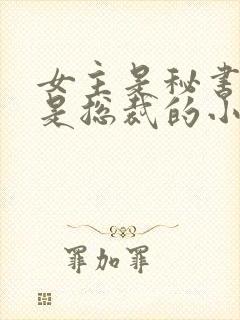 女主是秘书
是总裁的小
罪加罪